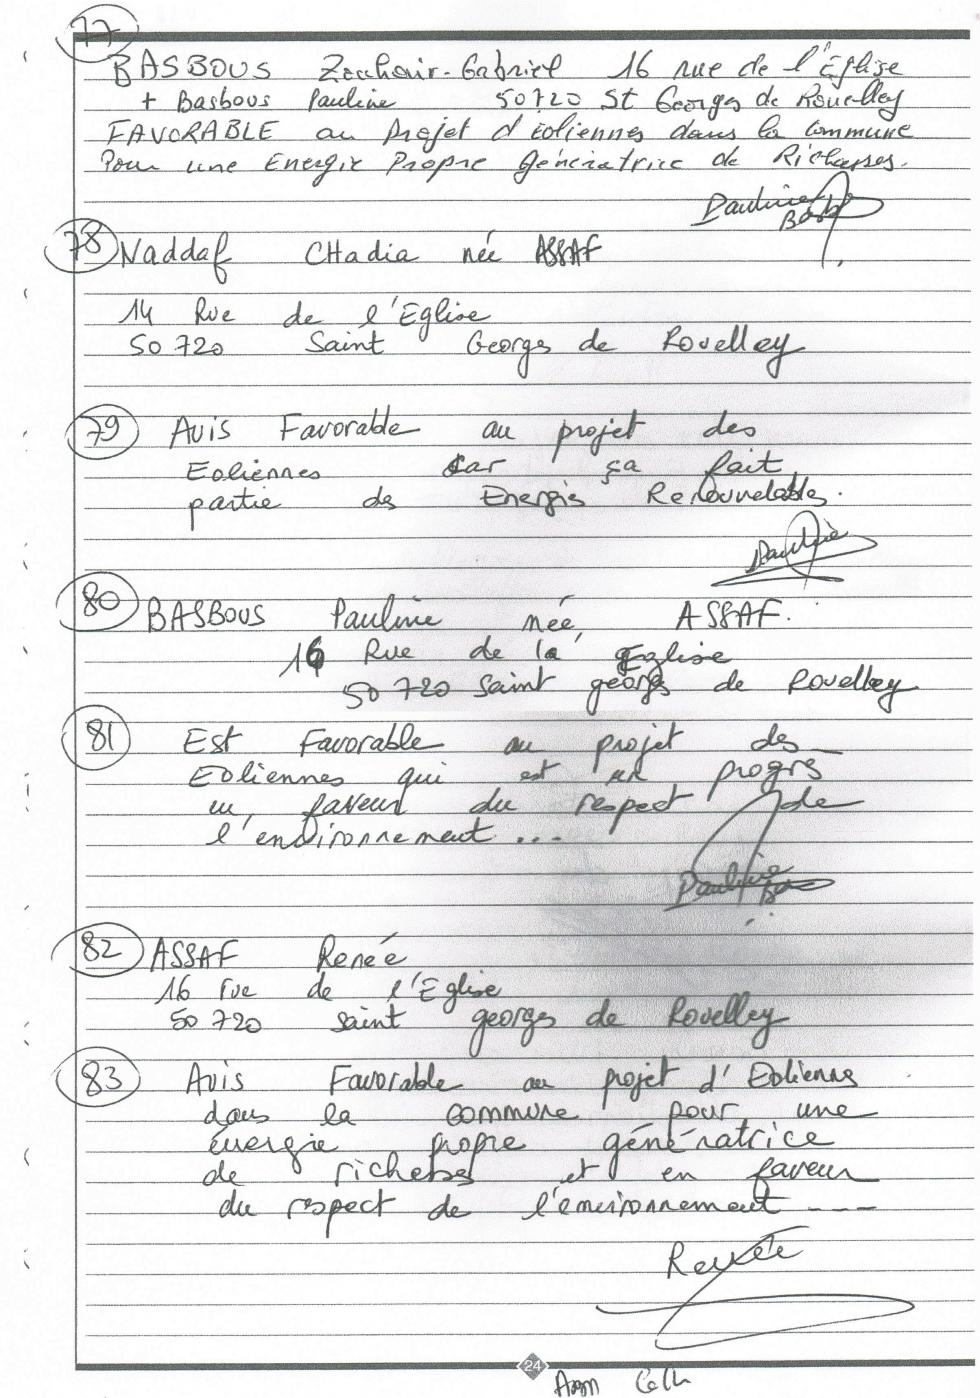 77
BASBOUS Zouhair-Gabriel 16 rue de l'Église
+ Basbous Pauline 50720 St Georges de Rouelley
FAVORABLE au Projet d'éoliennes dans la Commune
Pour une Energie Propre Génératrice de Richesses.
Pauline
Bas
78 Naddaf CHadia née ASSAF
14 Rue de l'Eglise
50 720 Saint Georges de Rouelley
79 Avis Favorable au projet des
Eoliennes car ça fait
partie des Energies Renouvelables.
Pauline
80 BASBOUS Pauline née ASSAF.
16 Rue de la Eglise
50 720 Saint georges de Rouelley
81 Est Favorable au projet des
Eoliennes qui est un progrs
en faveur du respect de
l'environnement ...
Pauline
Bas
82 ASSAF Renée
16 rue de l'Eglise
50 720 saint georges de Rouelley
83 Avis Favorable au projet d'Eoliennes
dans la commune pour une
énergie propre génératrice
de richesses et en faveur
du respect de l'environnement ----
Renée
24